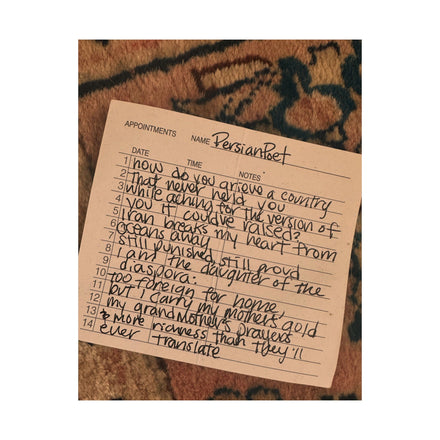 APPOINTMENTS NAME PersianPoet
DATE TIME NOTES
1 how do you grieve a country
2 That never held you
3 while aching for the version of
4 you it could've raised?
5 Iran breaks my heart from
6 oceans away
7 still punished, still proud
8 I am the daughter of the
9 diaspora:
10 too foreign for home,
11 but I carry my mother's gold
12 my grandmother's prayers
13 & more richness than they'll
14 ever translate